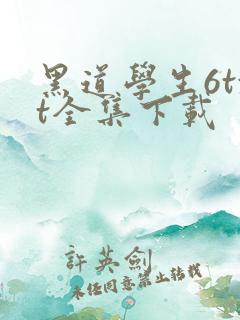 黑道學生6tx
t全集下載
許英劍
未经同意禁止转载